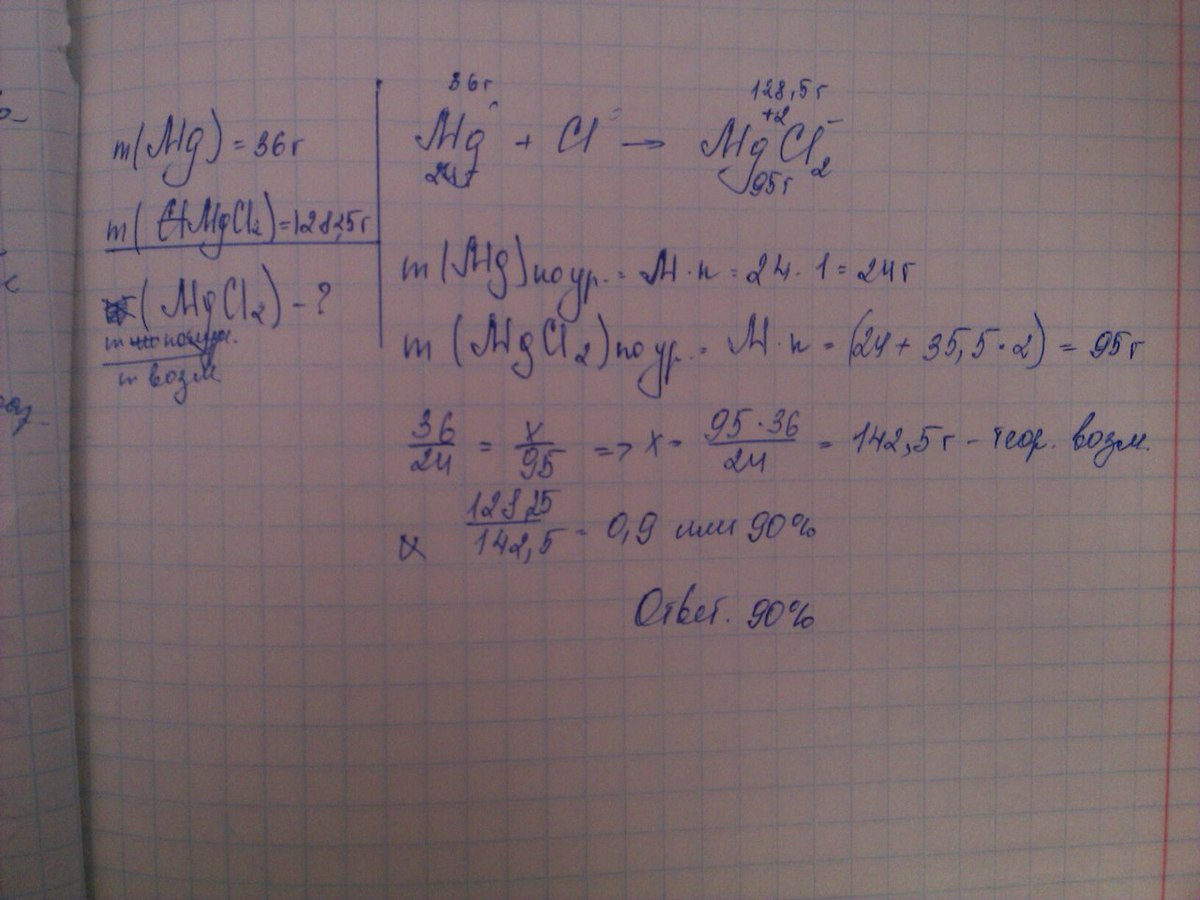 m(Mg) = 36г
m(MgCl₂) = 128,25г
(MgCl₂) - ?
m возм
36г
128,5г
+2 -
Mg + Cl → MgCl₂
24г
95г
m(Mg) по ур. = M·n = 24·1 = 24г
m(MgCl₂) по ур. = M·n = (24 + 35,5·2) = 95г
36/24 = x/95 => x = 95·36/24 = 142,5г - теор. возм.
128,25/142,5 = 0,9 или 90%
Ответ. 90%